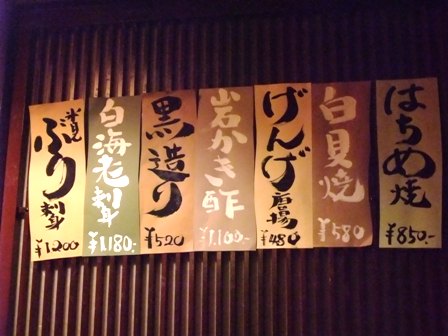 はちめ焼
¥850.-
白貝焼
¥580
げんげ唐揚
¥480
岩かき酢
¥1,100.-
黒造り
¥520
白海老刺
¥1,180.-
氷見ぶり刺
¥1200